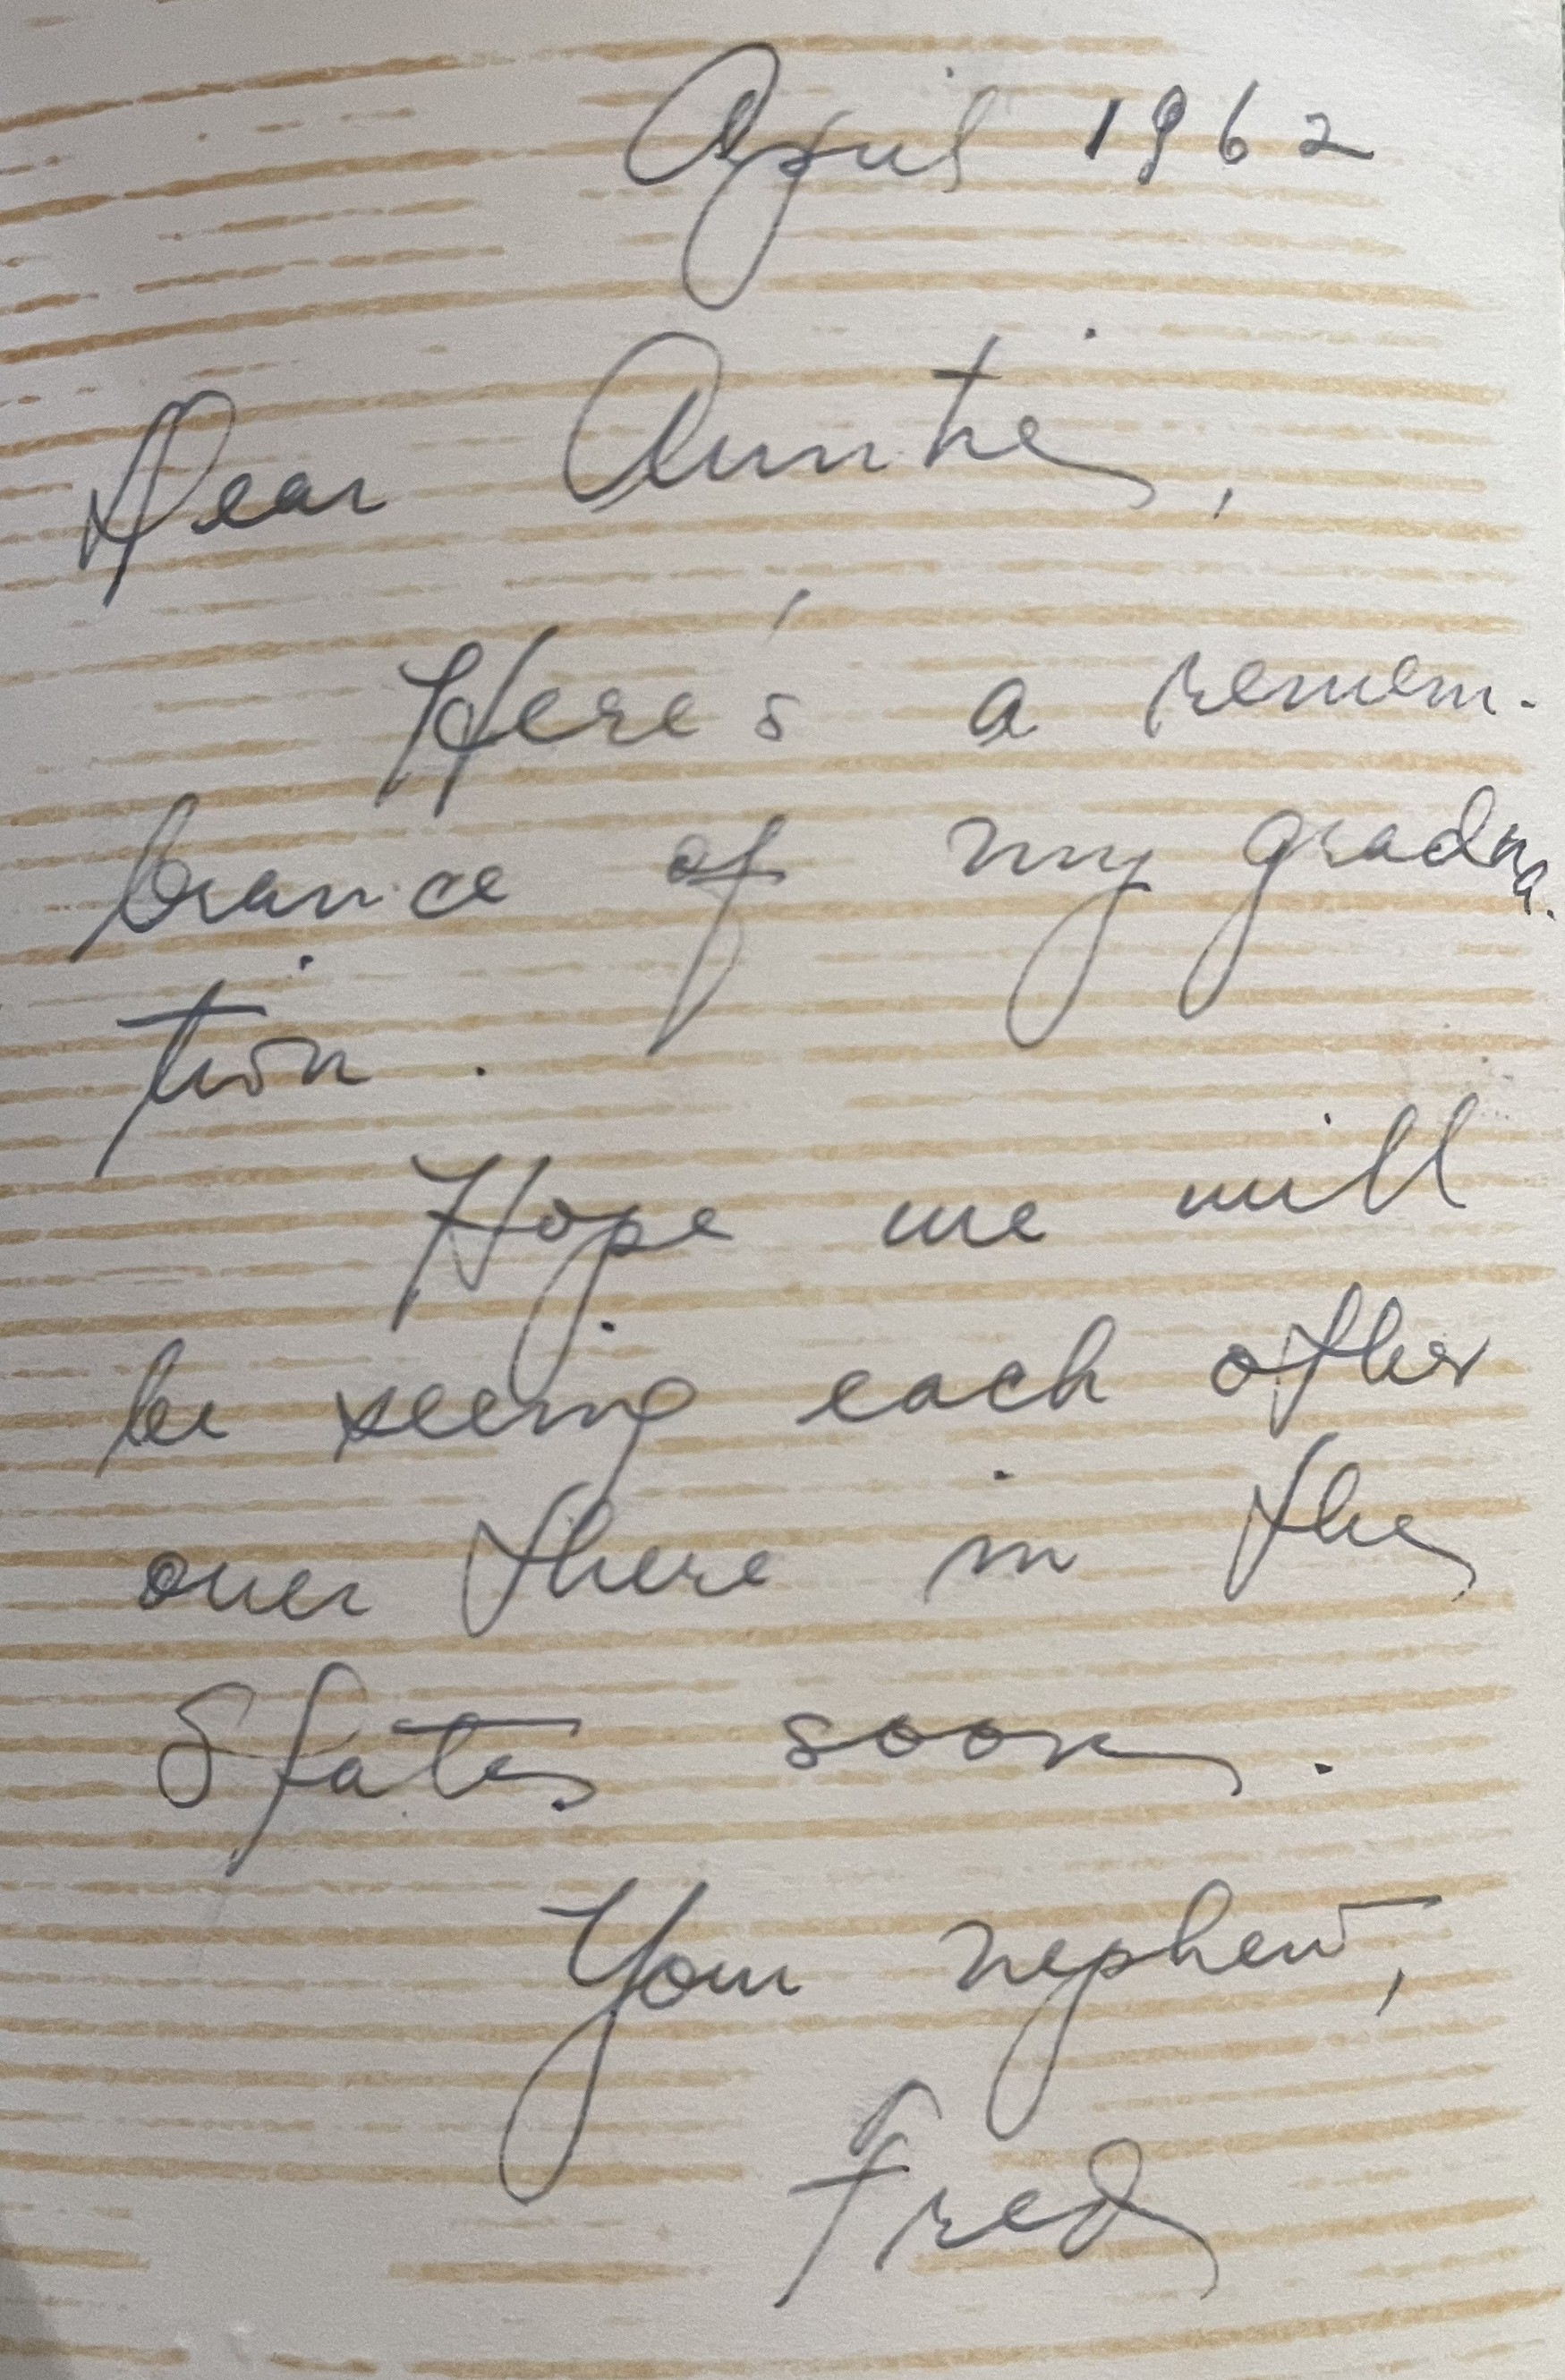 April 1962
Dear Auntie,
Here's a remem-
brance of my gradua-
tion.
Hope we will
be seeing each other
over there in the
States soon.
Your nephew,
Fred